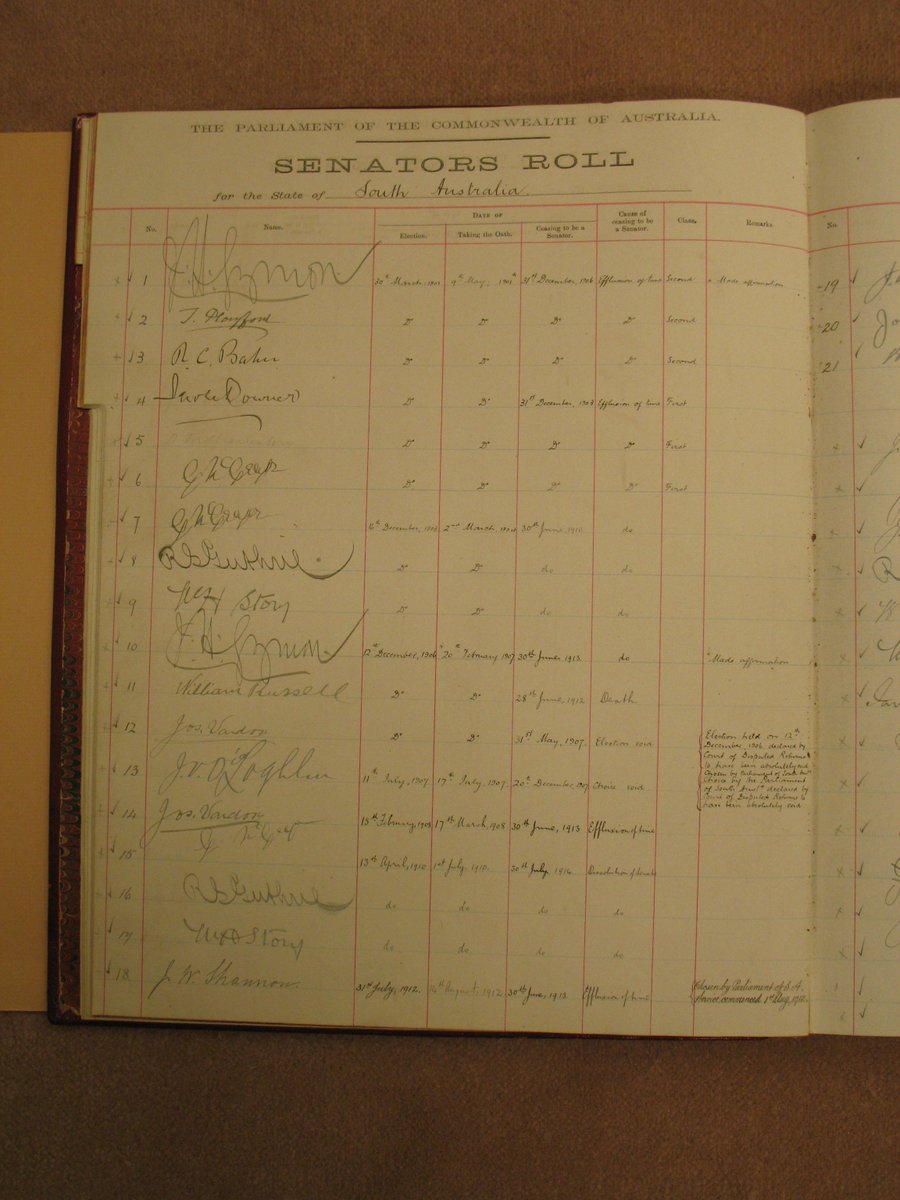 THE PARLIAMENT OF THE COMMONWEALTH OF AUSTRALIA.
SENATORS ROLL
for the State of South Australia.
No. Name. DATE OF Election. Taking the Oath. Ceasing to be a Senator. Cause of ceasing to be a Senator. Class. Remarks No.
1 J. H. Symon 30th March, 1901 9th May, 1901 31st December, 1906 Effluxion of time Second Made affirmation 19
2 T. Playford Do Do Do Do Second 20
3 R. C. Baker Do Do Do Do Second 21
4 Downer Do Do 31st December, 1903 Effluxion of time First
5 Do Do Do Do First
6 G McGregor Do Do Do Do First
7 G McGregor 16th December, 1903 2nd March, 1904 30th June, 1910 do
8 R S Guthrie Do Do do do
9 W H Story Do Do do do
10 J. H. Symon 12th December, 1906 20th February 1907 30th June, 1913 do Made affirmation
11 William Russell Do Do 28th June, 1912 Death
12 Jos. Vardon Do Do 31st May, 1907. Election void Election held on 12th December, 1906 declared by Court of Disputed Returns to have been absolutely void
13 J. V. O'Loghlin 11th July, 1907. 17th July, 1907 20th December, 1907 Choice void Choice by the Parliament of South Austn. declared by Court of Disputed Returns to have been absolutely void
14 Jos. Vardon 15th February, 1908 17th March, 1908 30th June, 1913 Effluxion of time
15 G McGregor 13th April, 1910 1st July, 1910. 30th July, 1914 Dissolution of Senate
16 R S Guthrie do do do do
17 W H Story do do do do
18 J. W. Shannon 31st July, 1912. 14th August, 1912 30th June, 1913 Effluxion of time Chosen by Parliament of S.A.